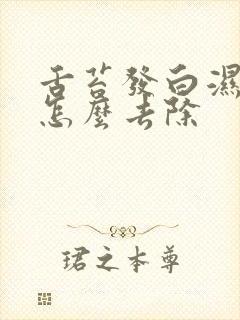 舌苔發白濕
怎麼去除
珺之本尊